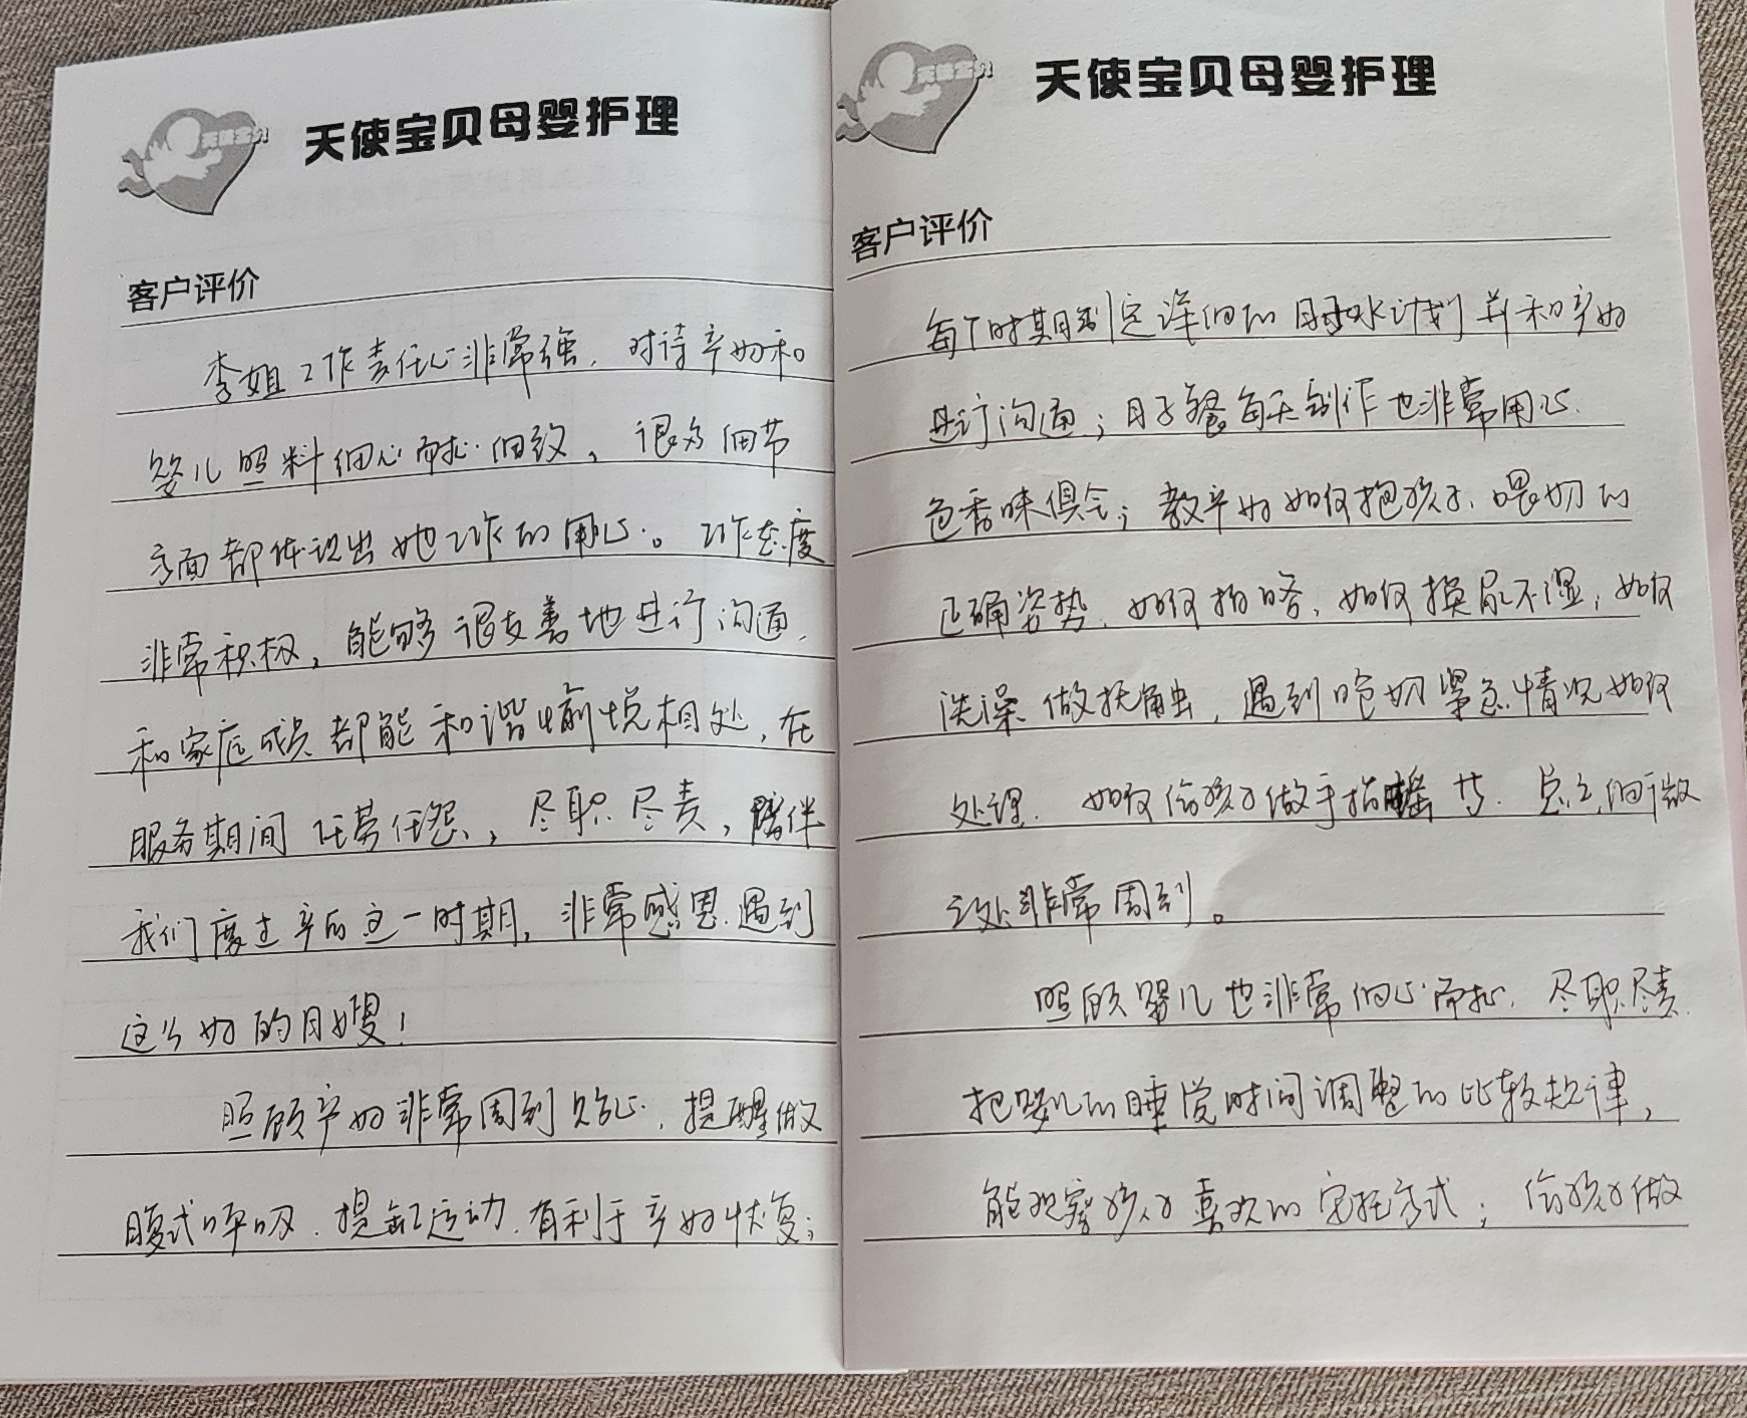 天使宝贝
天使宝贝母婴护理
客户评价
李姐工作责任心非常强，对待产妇和
婴儿照料细心而扎细致，很多细节
方面都体现出她工作的用心。工作态度
非常积极，能够很友善地进行沟通，
和家庭成员都能和谐愉悦相处，在
服务期间任劳任怨，尽职尽责，陪伴
我们度过产后这一时期，非常感恩遇到
这么好的月嫂！
照顾产妇非常周到贴心，提醒做
腹式呼吸、提肛运动，有利于产妇恢复；
天使宝贝
天使宝贝母婴护理
客户评价
每个时期制定详细的月子水计划并和产妇
进行沟通；月子餐每天制作也非常用心，
色香味俱全；教产妇如何抱孩子、喂奶的
正确姿势、如何拍嗝、如何换尿不湿，如何
洗澡做抚触，遇到呛奶紧急情况如何
处理、如何给孩子做手指操等，总之细微
之处非常周到。
照顾婴儿也非常细心而扎，尽职尽责，
把婴儿的睡觉时间调整的比较规律，
能观察孩子喜欢的安抚方式；给孩子做